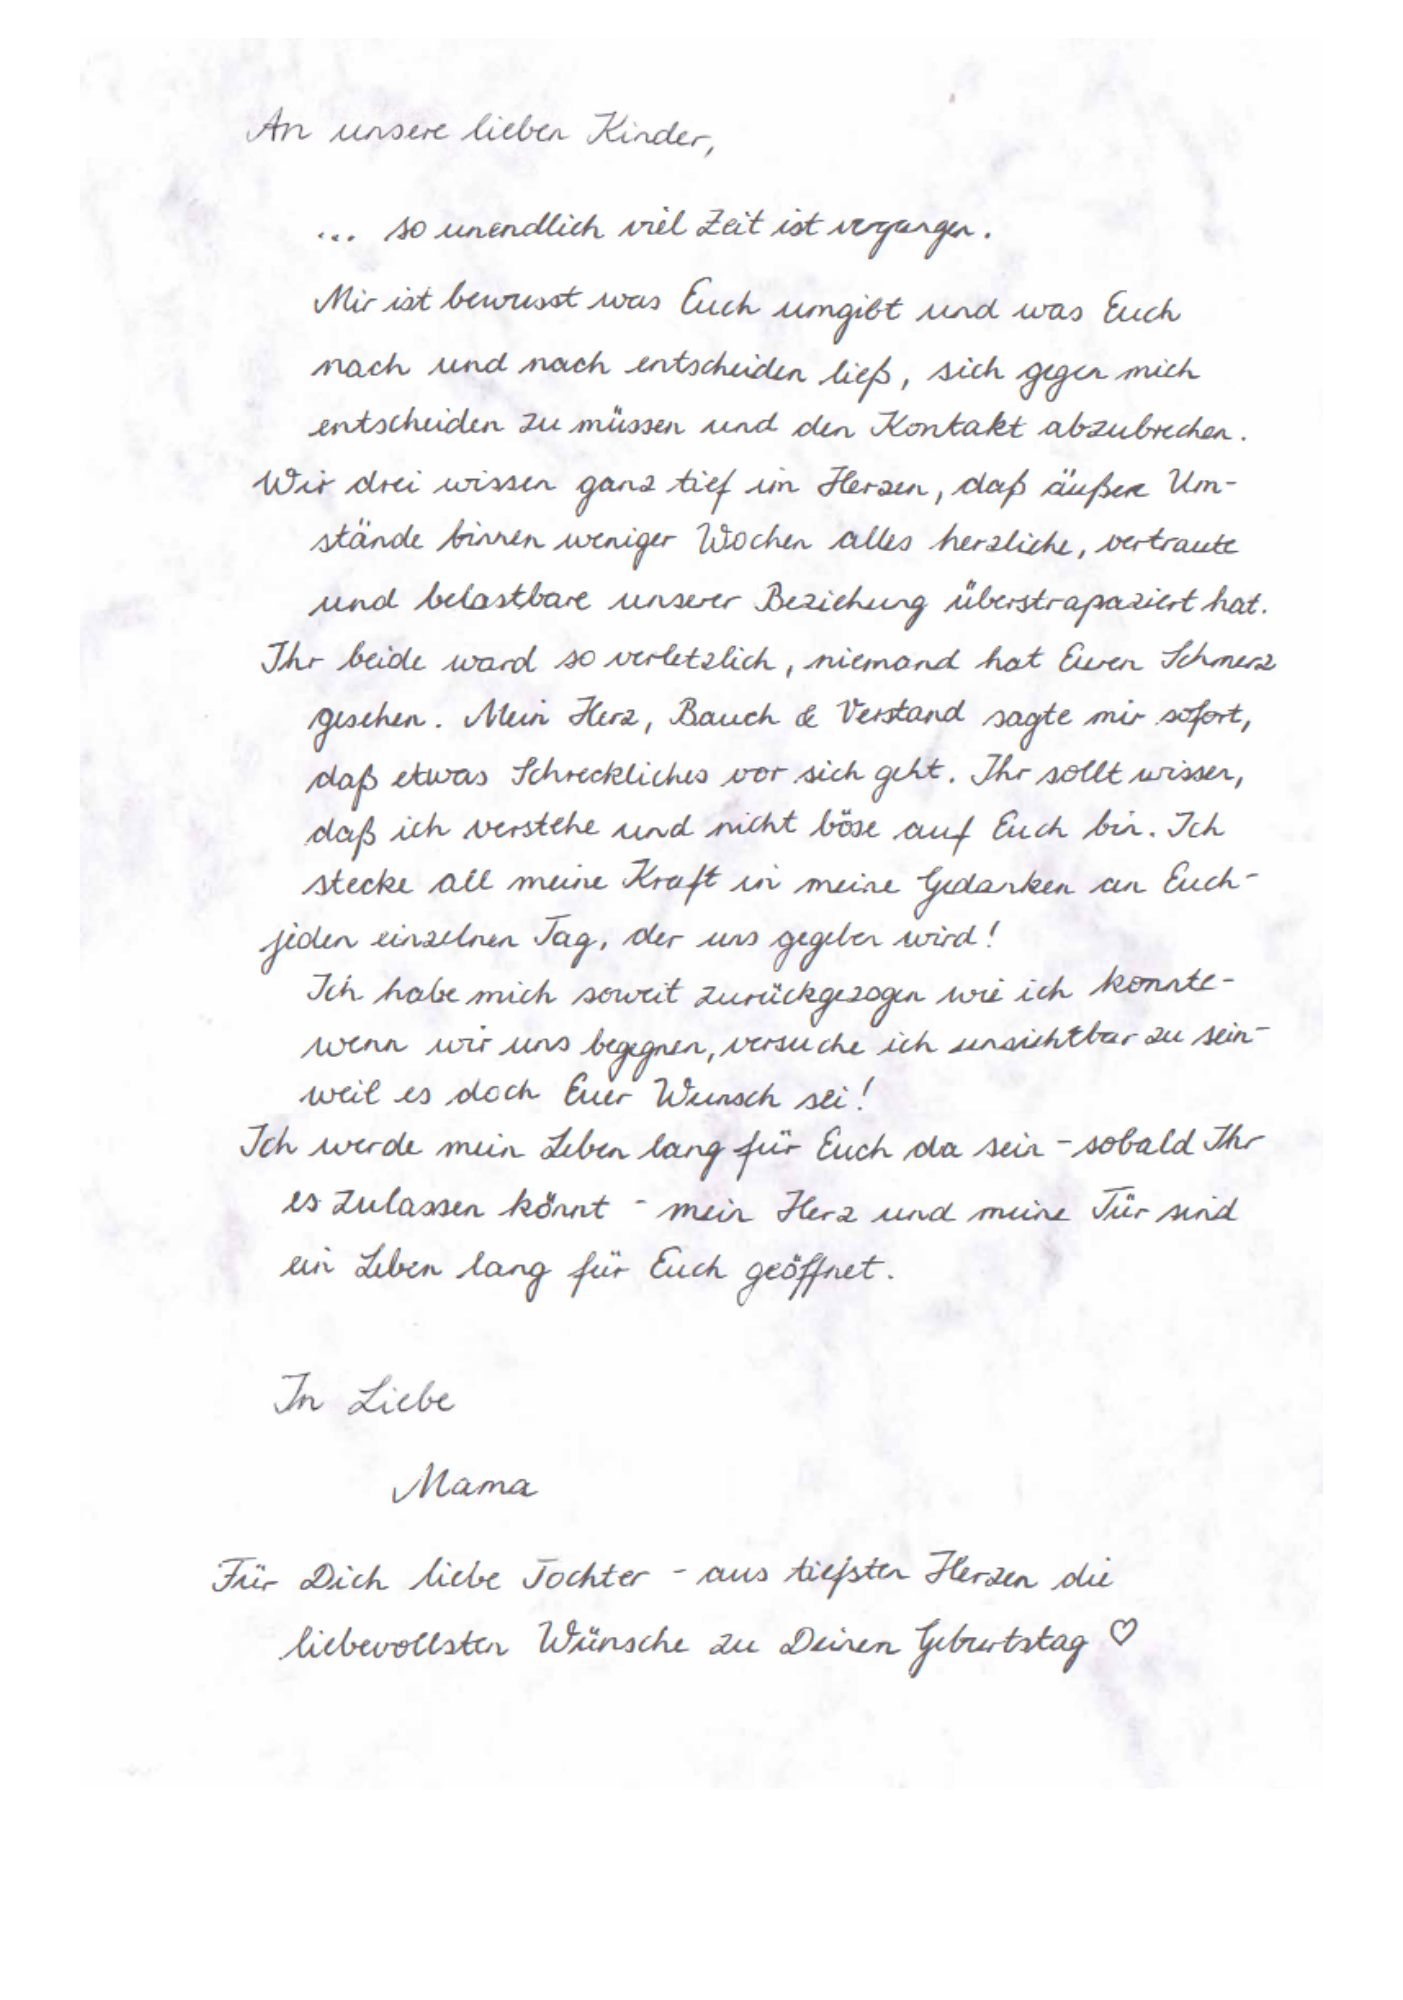 An unsere lieben Kinder,
... so unendlich viel Zeit ist vergangen.
Mir ist bewusst was Euch umgibt und was Euch
nach und nach entscheiden ließ, sich gegen mich
entscheiden zu müssen und den Kontakt abzubrechen.
Wir drei wissen ganz tief im Herzen, daß äußere Um-
stände binnen weniger Wochen alles herzliche, vertraute
und belastbare unserer Beziehung überstrapaziert hat.
Ihr beide ward so verletzlich, niemand hat Euren Schmerz
gesehen. Mein Herz, Bauch & Verstand sagte mir sofort,
daß etwas Schreckliches vor sich geht. Ihr sollt wissen,
daß ich verstehe und nicht böse auf Euch bin. Ich
stecke all meine Kraft in meine Gedanken an Euch-
jeden einzelnen Tag, der uns gegeben wird!
Ich habe mich soweit zurückgezogen wie ich konnte-
wenn wir uns begegnen, versuche ich unsichtbar zu sein-
weil es doch Euer Wunsch sei!
Ich werde mein Leben lang für Euch da sein - sobald Ihr
es zulassen könnt - mein Herz und meine Tür sind
ein Leben lang für Euch geöffnet.
In Liebe
Mama
Für Dich liebe Tochter - aus tiefsten Herzen die
liebevollsten Wünsche zu Deinen Geburtstag ♡